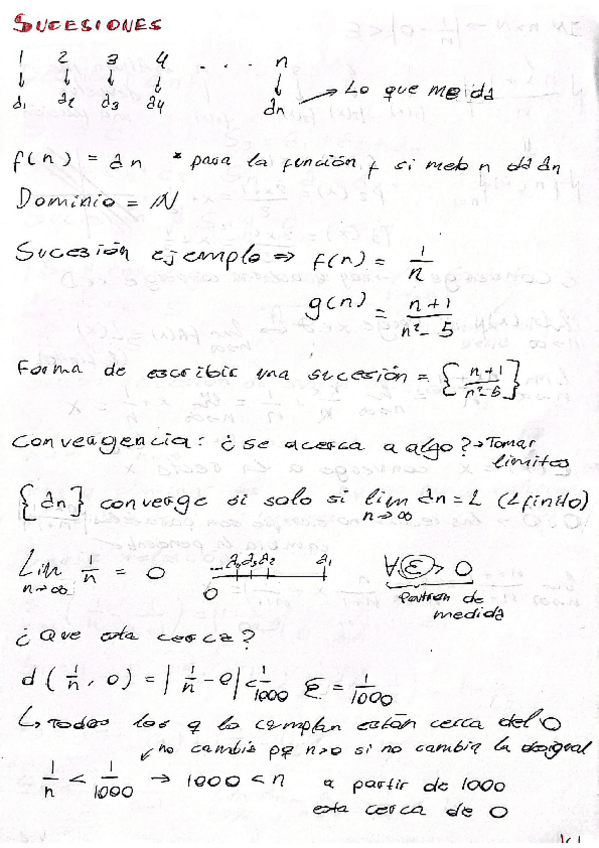 SUCESIONES
1 2 3 4 . . . n
↓ ↓ ↓ ↓ ↓
a1 a2 a3 a4 an → Lo que me da
f(n) = an * para la función f si meto n da an
Dominio = N
Sucesión ejemplo ⇒ f(n) = 1/n
g(n) = n+1/n²-5
Forma de escribir una sucesión = {n+1/n²-5}
Convergencia: ¿se acerca a algo? → Tomar
limites
{an} converge si solo si lim n→∞ an = L (L finito)
Lim n→∞ 1/n = 0 0 ... a4 a3 a2 a1 ∀ε > 0
Patron de
medida
¿Que esta cerca?
d(1/n, 0) = |1/n - 0| < 1/1000 ε = 1/1000
↳ Todos los q lo cumplan están cerca del 0
↙ no cambia pq n>0 si no cambia la desigual
1/n < 1/1000 → 1000 < n a partir de 1000
esta cerca de 0